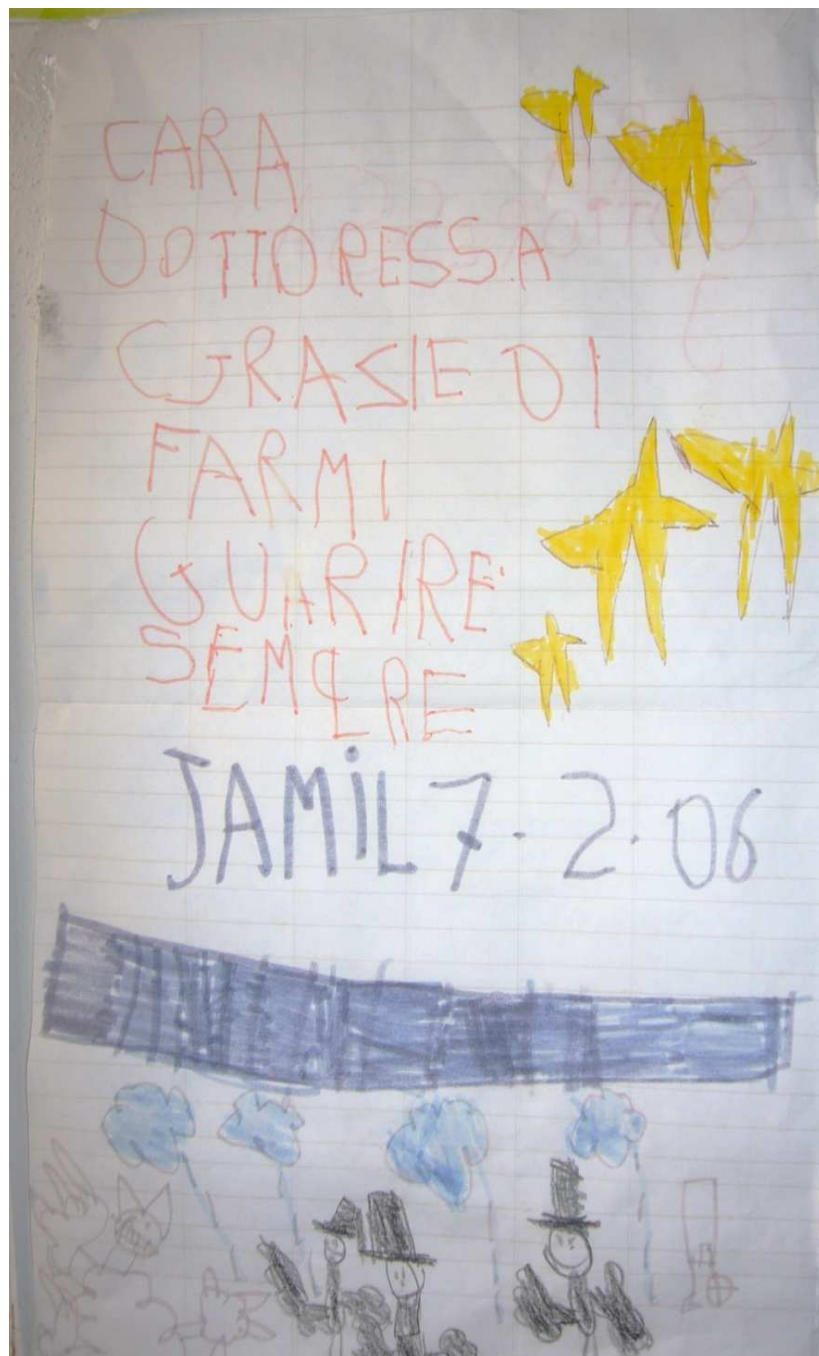 CARA
DOTTORESSA
GRASIE DI
FARMI
GUARIRE
SEMPRE
JAMIL 7.2.06